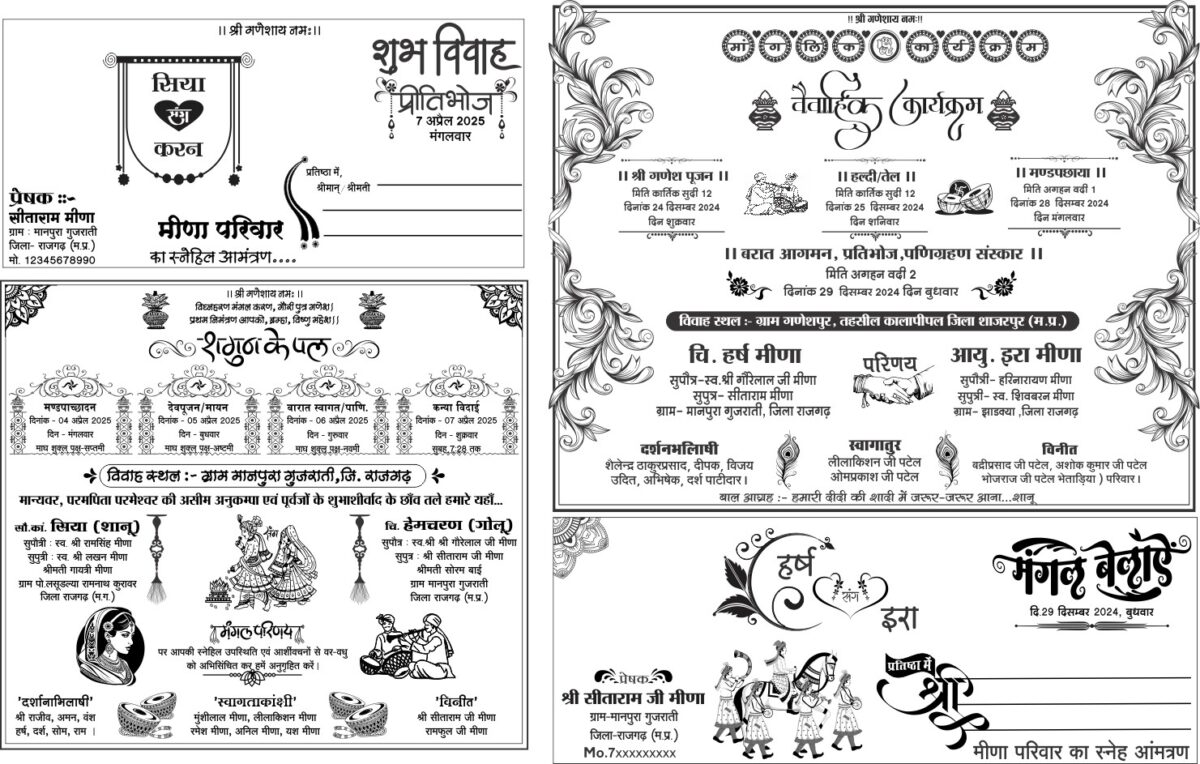 ।। श्री गणेशाय नमः।।
सिया
संग
करन
शुभ विवाह
प्रीतिभोज
7 अप्रैल 2025
मंगलवार
प्रतिष्ठा में,
श्रीमान्/ श्रीमती
प्रेषक ::-
सीताराम मीणा
ग्राम : मानपुरा गुजराती
जिला- राजगढ़ (म.प्र.)
मो. 12345678990
मीणा परिवार
का स्नेहिल आमंत्रण....
।। श्री गणेशाय नमः ।।
विघ्नहरण मंगल करण, गौरी पुत्र गणेश।
प्रथम निमंत्रण आपको, ब्रम्हा, विष्णु महेश।।
शगुन के पल
मण्डपाच्छादन
दिनांक - 04 अप्रैल 2025
दिन - मंगलवार
माघ शुक्ल पक्ष-सप्तमी
देवपूजन/मायन
दिनांक - 05 अप्रैल 2025
दिन - बुधवार
माघ शुक्ल पक्ष-अष्टमी
बारात स्वागत/पाणि.
दिनांक - 06 अप्रैल 2025
दिन - गुरुवार
माघ शुक्ल पक्ष-नवमी
कन्या विदाई
दिनांक - 07 अप्रैल 2025
दिन - शुक्रवार
सुबह.7.28 तक
विवाह स्थल :- ग्राम मानपुरा गुजराती,जि. राजगढ़
मान्यवर, परमपिता परमेश्वर की असीम अनुकम्पा एवं पूर्वजों के शुभाशीर्वाद के छाँव तले हमारे यहाँ...
सौ.कां. सिया (शानू)
सुपौत्री : स्व. श्री रामसिंह मीणा
सुपुत्री : स्व. श्री लखन मीणा
श्रीमती गायत्री मीणा
ग्राम पो.लसूडल्या रामनाथ कुरावर
जिला राजगढ़ (म.ग.)
संग
चि. हेमचरण (गोलू)
सुपौत्र : स्व.श्री श्री गौरेलाल जी मीणा
सुपुत्र : श्री सीताराम जी मीणा
श्रीमती सोरम बाई
ग्राम मानपुरा गुजराती
जिला राजगढ़ (म.प्र.)
मंगल परिणय
पर आपकी स्नेहिल उपस्थिति एवं आर्शीवचनों से वर-वधु
को अभिसिंचित कर हमें अनुगृहित करें।
'दर्शनाभिलाषी'
श्री राजीव, अमन, वंश
हर्ष, दर्श, सोम, राम ।
'स्वागताकांशी'
मुंशीलाल मीणा, लीलाकिशन मीणा
रमेश मीणा, अनिल मीणा, यश मीणा
'विनीत'
श्री सीताराम जी मीणा
रामफुल जी मीणा
!! श्री गणेशाय नमः!!
मांगलिक कार्यक्रम
वैवाहिक कार्यक्रम
।। श्री गणेश पूजन ।।
मिति कार्तिक सुदी 12
दिनांक 24 दिसम्बर 2024
दिन शुक्रवार
।। हल्दी/तेल ।।
मिति कार्तिक सुदी 12
दिनांक 25 दिसम्बर 2024
दिन शनिवार
।। मण्डपछाया ।।
मिति अगहन वदी 1
दिनांक 28 दिसम्बर 2024
दिन मंगलवार
।। बरात आगमन, प्रतिभोज,पणिग्रहण संस्कार ।।
मिति अगहन वदी 2
दिनांक 29 दिसम्बर 2024 दिन बुधवार
विवाह स्थल :- ग्राम गणेशपुर, तहसील कालापीपल जिला शाजरपुर (म.प्र.)
चि. हर्ष मीणा
सुपौत्र-स्व.श्री गौरेलाल जी मीणा
सुपुत्र- सीताराम मीणा
ग्राम- मानपुरा गुजराती, जिला राजगढ़
परिणय
आयु. इरा मीणा
सुपौत्री- हरिनारायण मीणा
सुपुत्री- स्व. शिवबरन मीणा
ग्राम- झाडक्या ,जिला राजगढ़
दर्शनभलािषी
शैलेन्द्र ठाकुरप्रसाद, दीपक, विजय
उदित, अभिषेक, दर्श पाटीदार ।
स्वागातुर
लीलाकिशन जी पटेल
ओमप्रकाश जी पटेल
विनीत
बद्रीप्रसाद जी पटेल, अशोक कुमार जी पटेल
भोजराज जी पटेल भेताड़िया ) परिवार ।
बाल आग्रह :- हमारी दीदी की शादी में जरूर-जरूर आना...शानू
हर्ष
संग
इरा
मंगल बेलाऐं
दि.29 दिसम्बर 2024, बुधवार
प्रेषक
श्री सीताराम जी मीणा
ग्राम-मानपुरा गुजराती
जिला-राजगढ़ (म.प्र.)
Mo.7xxxxxxxxx
प्रतिष्ठा में
श्री
मीणा परिवार का स्नेह आंमत्रण